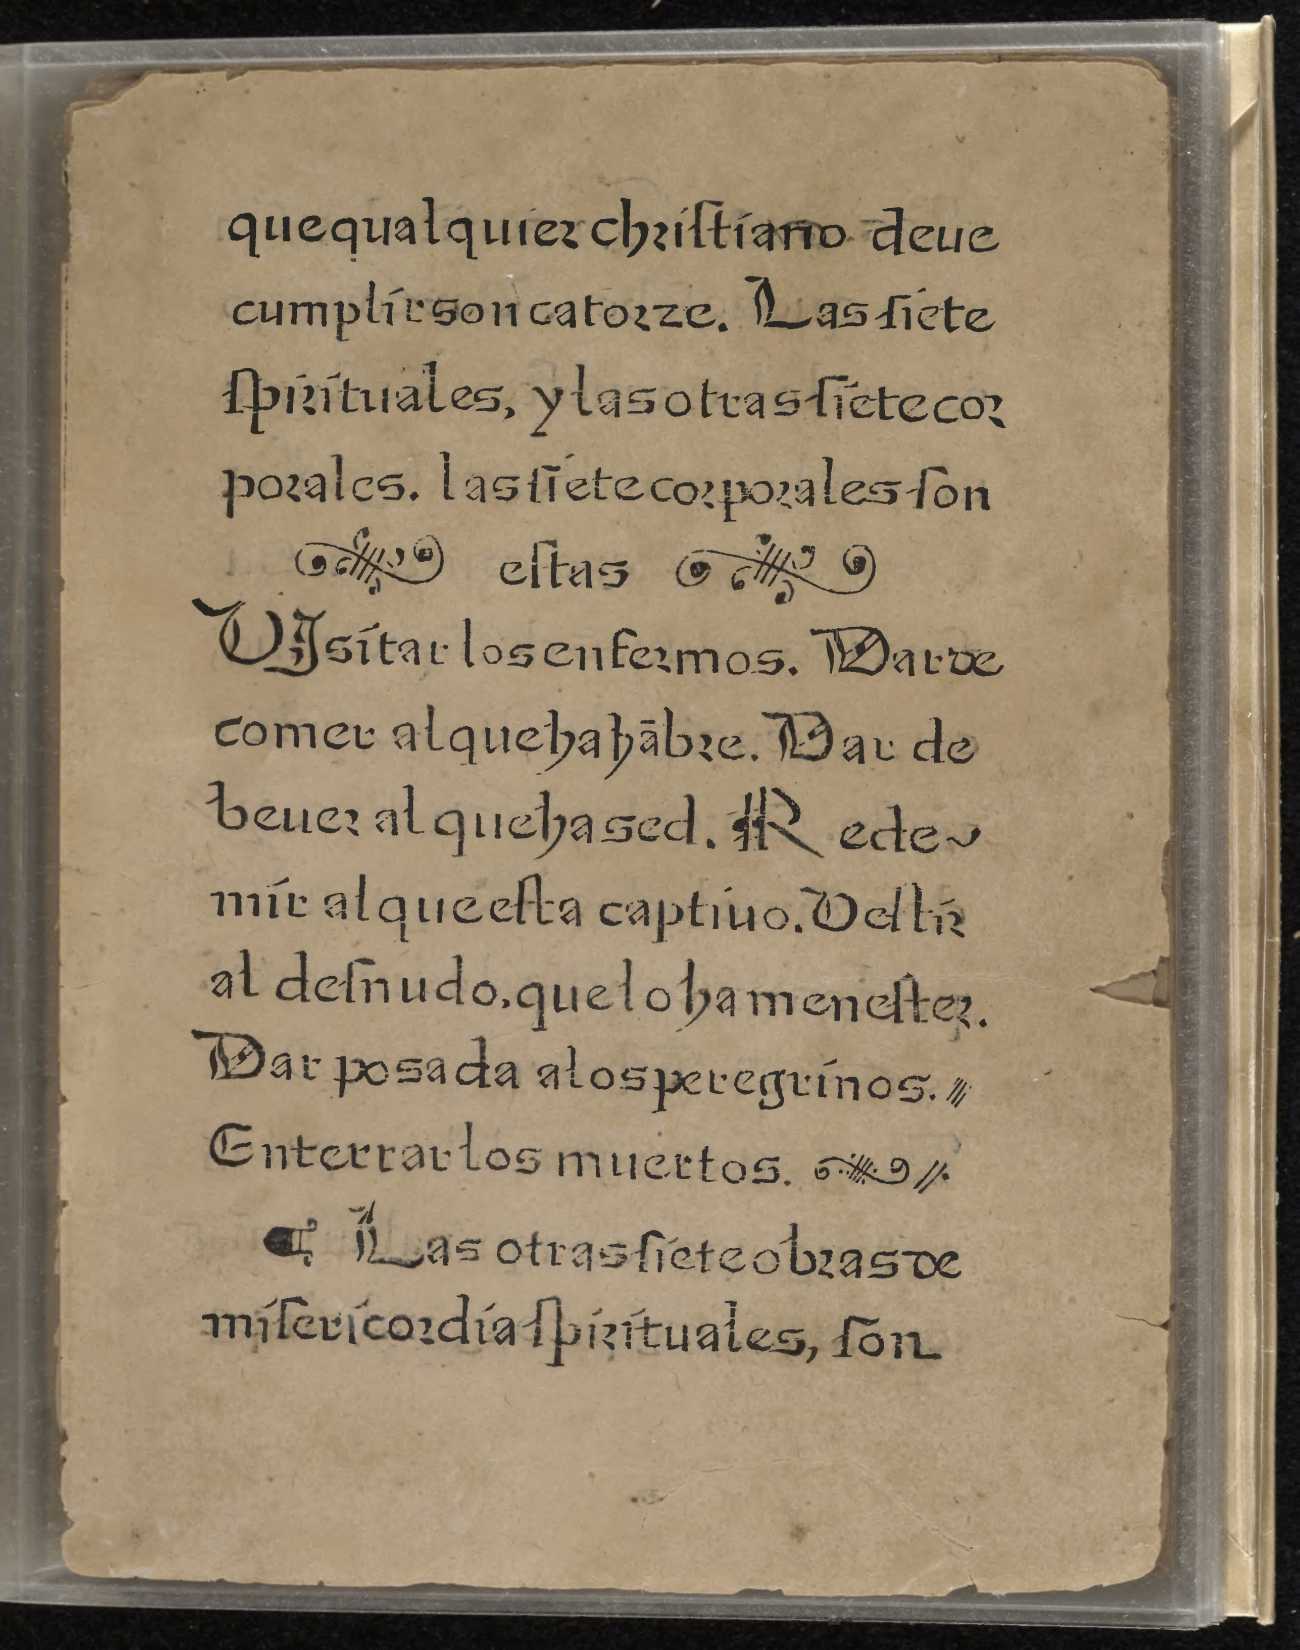 que qualquier chriſtiano deue
cumplir son catorze. Las ſiete
ſpirituales, y las otras ſiete cor
porales. las ſiete corporales ſon
eſtas
VIsitar los enfermos. Dar de
comer al que ha hābre. Dar de
beuer al que ha sed. Rede~
mir al que eſta captiuo. Veſtir
al deſnudo, que lo ha meneſter.
Dar posada a los peregrinos. //
Enterrar los muertos. //.
¶ Las otras ſiete obras de
miſericordia ſpirituales, ſon